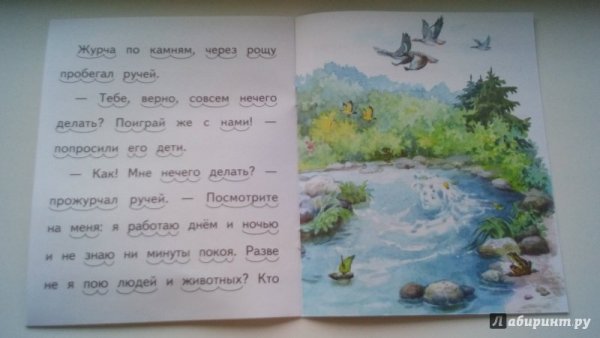 Журча по камням, через рощу
пробегал ручей.
— Тебе, верно, совсем нечего
делать? Поиграй же с нами! —
попросили его дети.
— Как! Мне нечего делать? —
прожурчал ручей. — Посмотрите
на меня: я работаю днём и ночью
и не знаю ни минуты покоя. Разве
не я пою людей и животных? Кто
Лабиринт.ру